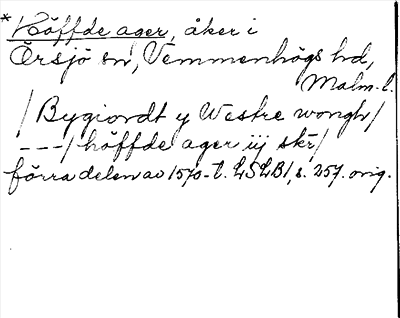 *Höffde ager, åker i
Örsjö sn, Vemmenhögs hd,
Malm. l.
/Bygiordt y Westre wongh/
---/höffde ager iij skr/
förra delen av 1570-t. LSLB1, s. 257. orig.